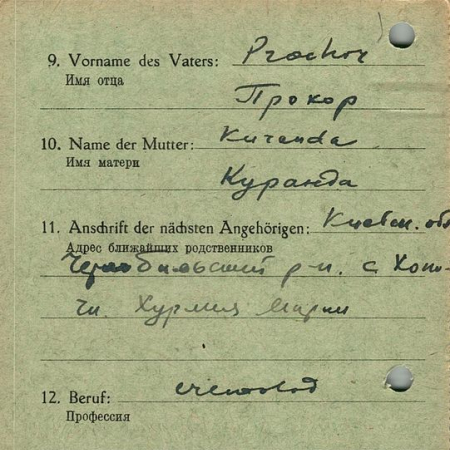 9. Vorname des Vaters: Prochor
Имя отца
Прокор
10. Name der Mutter: Kuranda
Имя матери
Куранда
11. Anschrift der nächsten Angehörigen: Киевск. обл
Адрес ближайших родственников
р-н. с
Марии
12. Beruf:
Профессия